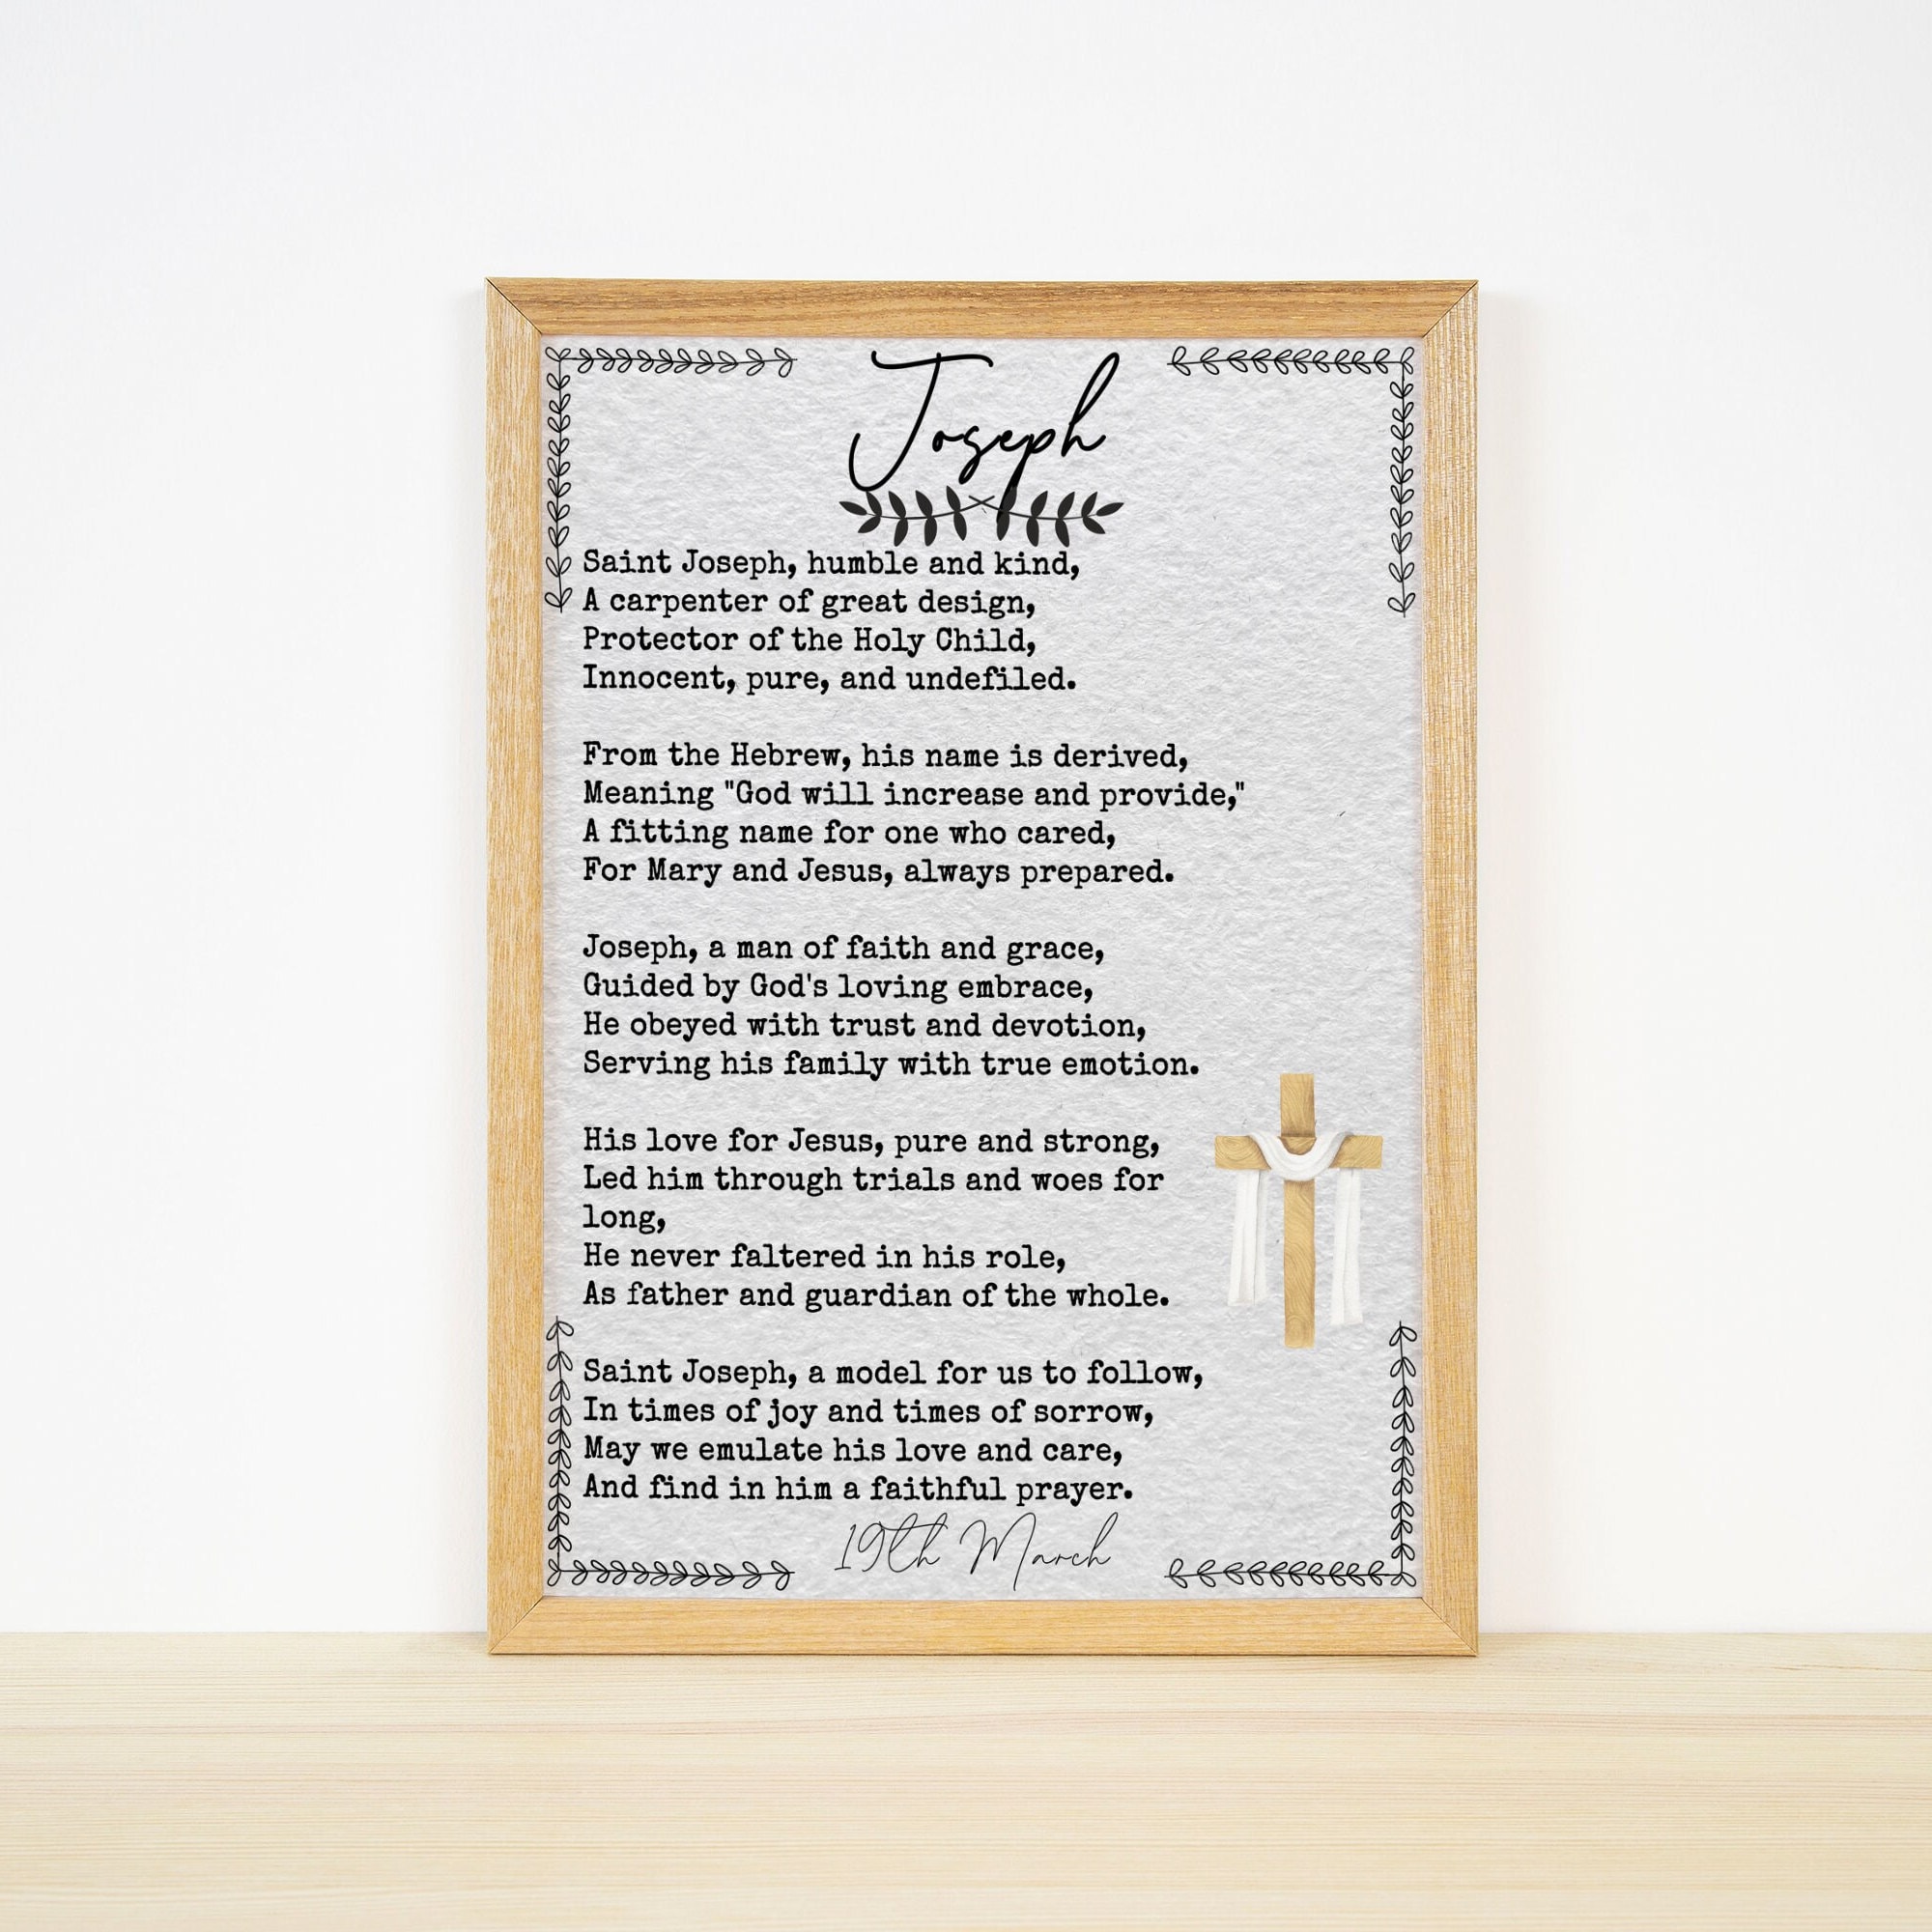 Joseph
Saint Joseph, humble and kind,
A carpenter of great design,
Protector of the Holy Child,
Innocent, pure, and undefiled.
From the Hebrew, his name is derived,
Meaning "God will increase and provide,"
A fitting name for one who cared,
For Mary and Jesus, always prepared.
Joseph, a man of faith and grace,
Guided by God's loving embrace,
He obeyed with trust and devotion,
Serving his family with true emotion.
His love for Jesus, pure and strong,
Led him through trials and woes for
long,
He never faltered in his role,
As father and guardian of the whole.
Saint Joseph, a model for us to follow,
In times of joy and times of sorrow,
May we emulate his love and care,
And find in him a faithful prayer.
19th March